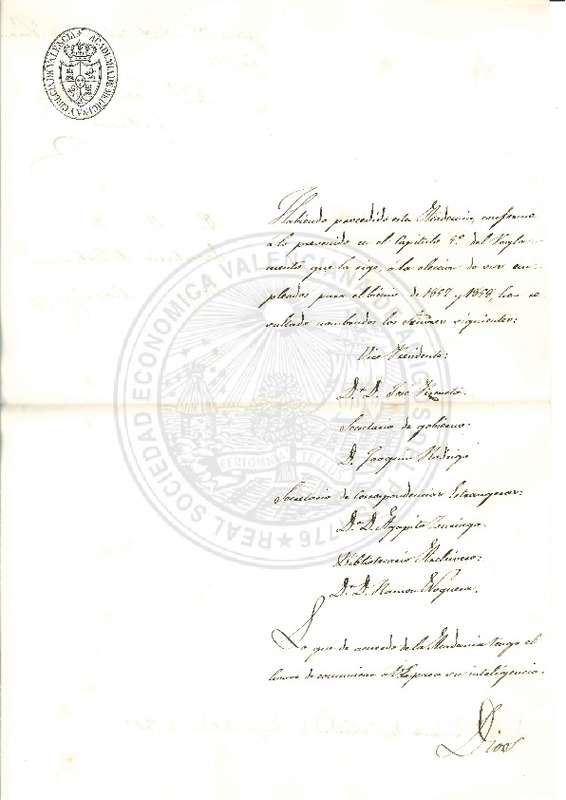 ACADEMIA DE MEDICINA Y CIRUGIA DE VALENCIA
Habiendo procedido esta Academia, conforme
a lo prevenido en el Capitulo 9º del Regla-
mento que la rige, á la eleccion de sus em-
pleados para el bienio de 1857 y 1858, han re-
sultado nombrados los Señores siguientes:
Vice Presidente:
Dr. D. José
Secretario de gobierno:
D. Joaquin Rodrigo
Secretario de Correspondencias Estrangeras:
Dr. D. Agapito Zuriaga.
Bibliotecario Archivero:
Dr. D. Ramon Noguera.
Lo que de acuerdo de la Academia tengo el
honor de comunicar a V. para su inteligencia.
Dios
REAL SOCIEDAD ECONOMICA VALENCIANA DE AMIGOS DEL PAIS
1776